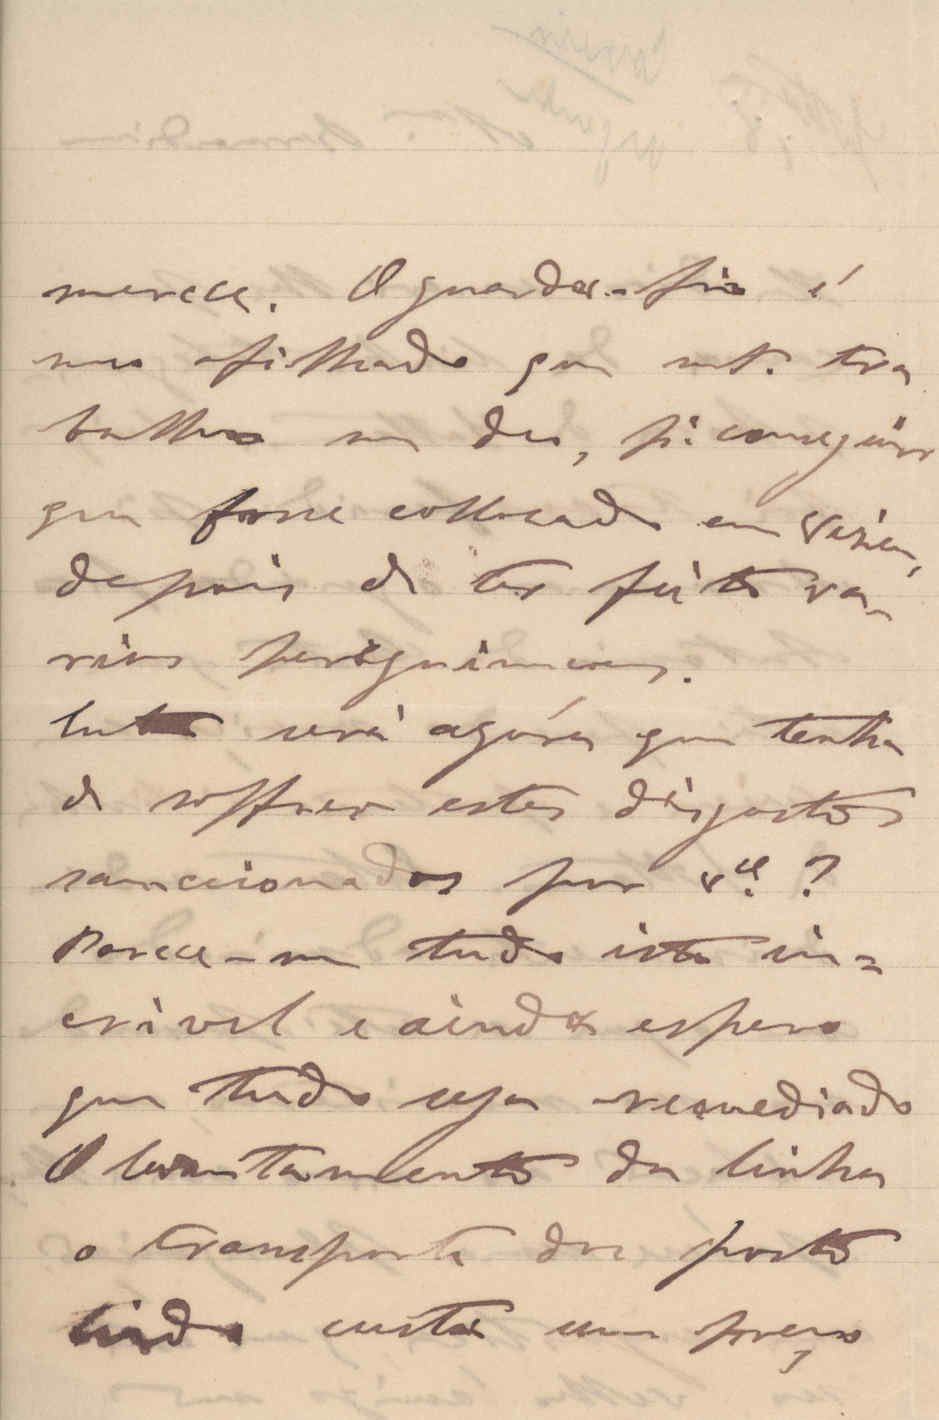 merece. O guarda-fio é
meu afilhado que mt.º tra
balho me deu, p.ª conseguir
que fosse collocado em Viseu,
depois de ter feito va-
rios
será agóra que tenha
de soffrer estes disgostos
sanccionados por v.cê ?
Parece-me tudo isto in=
crivel e ainda espero
que tudo seja remediado
O levantamento da linha
o transporte dos postes
tudo custa um preço